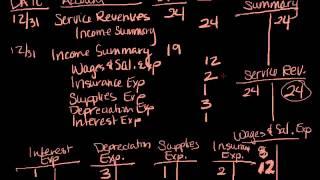 DATE Account
Summary
12/31 Service Revenues 24
Income Summary 24
24
12/31 Income Summary 19
Wages & Sal. Exp 12
Insurance Exp 2
Supplies Exp 1
Depreciation Exp 3
Interest Exp 1
Service Rev.
24 24
Wages & Sal. Exp
8
12
Interest Exp
1
Depreciation Exp.
3
Supplies Exp
1
Insuran Exp.
2